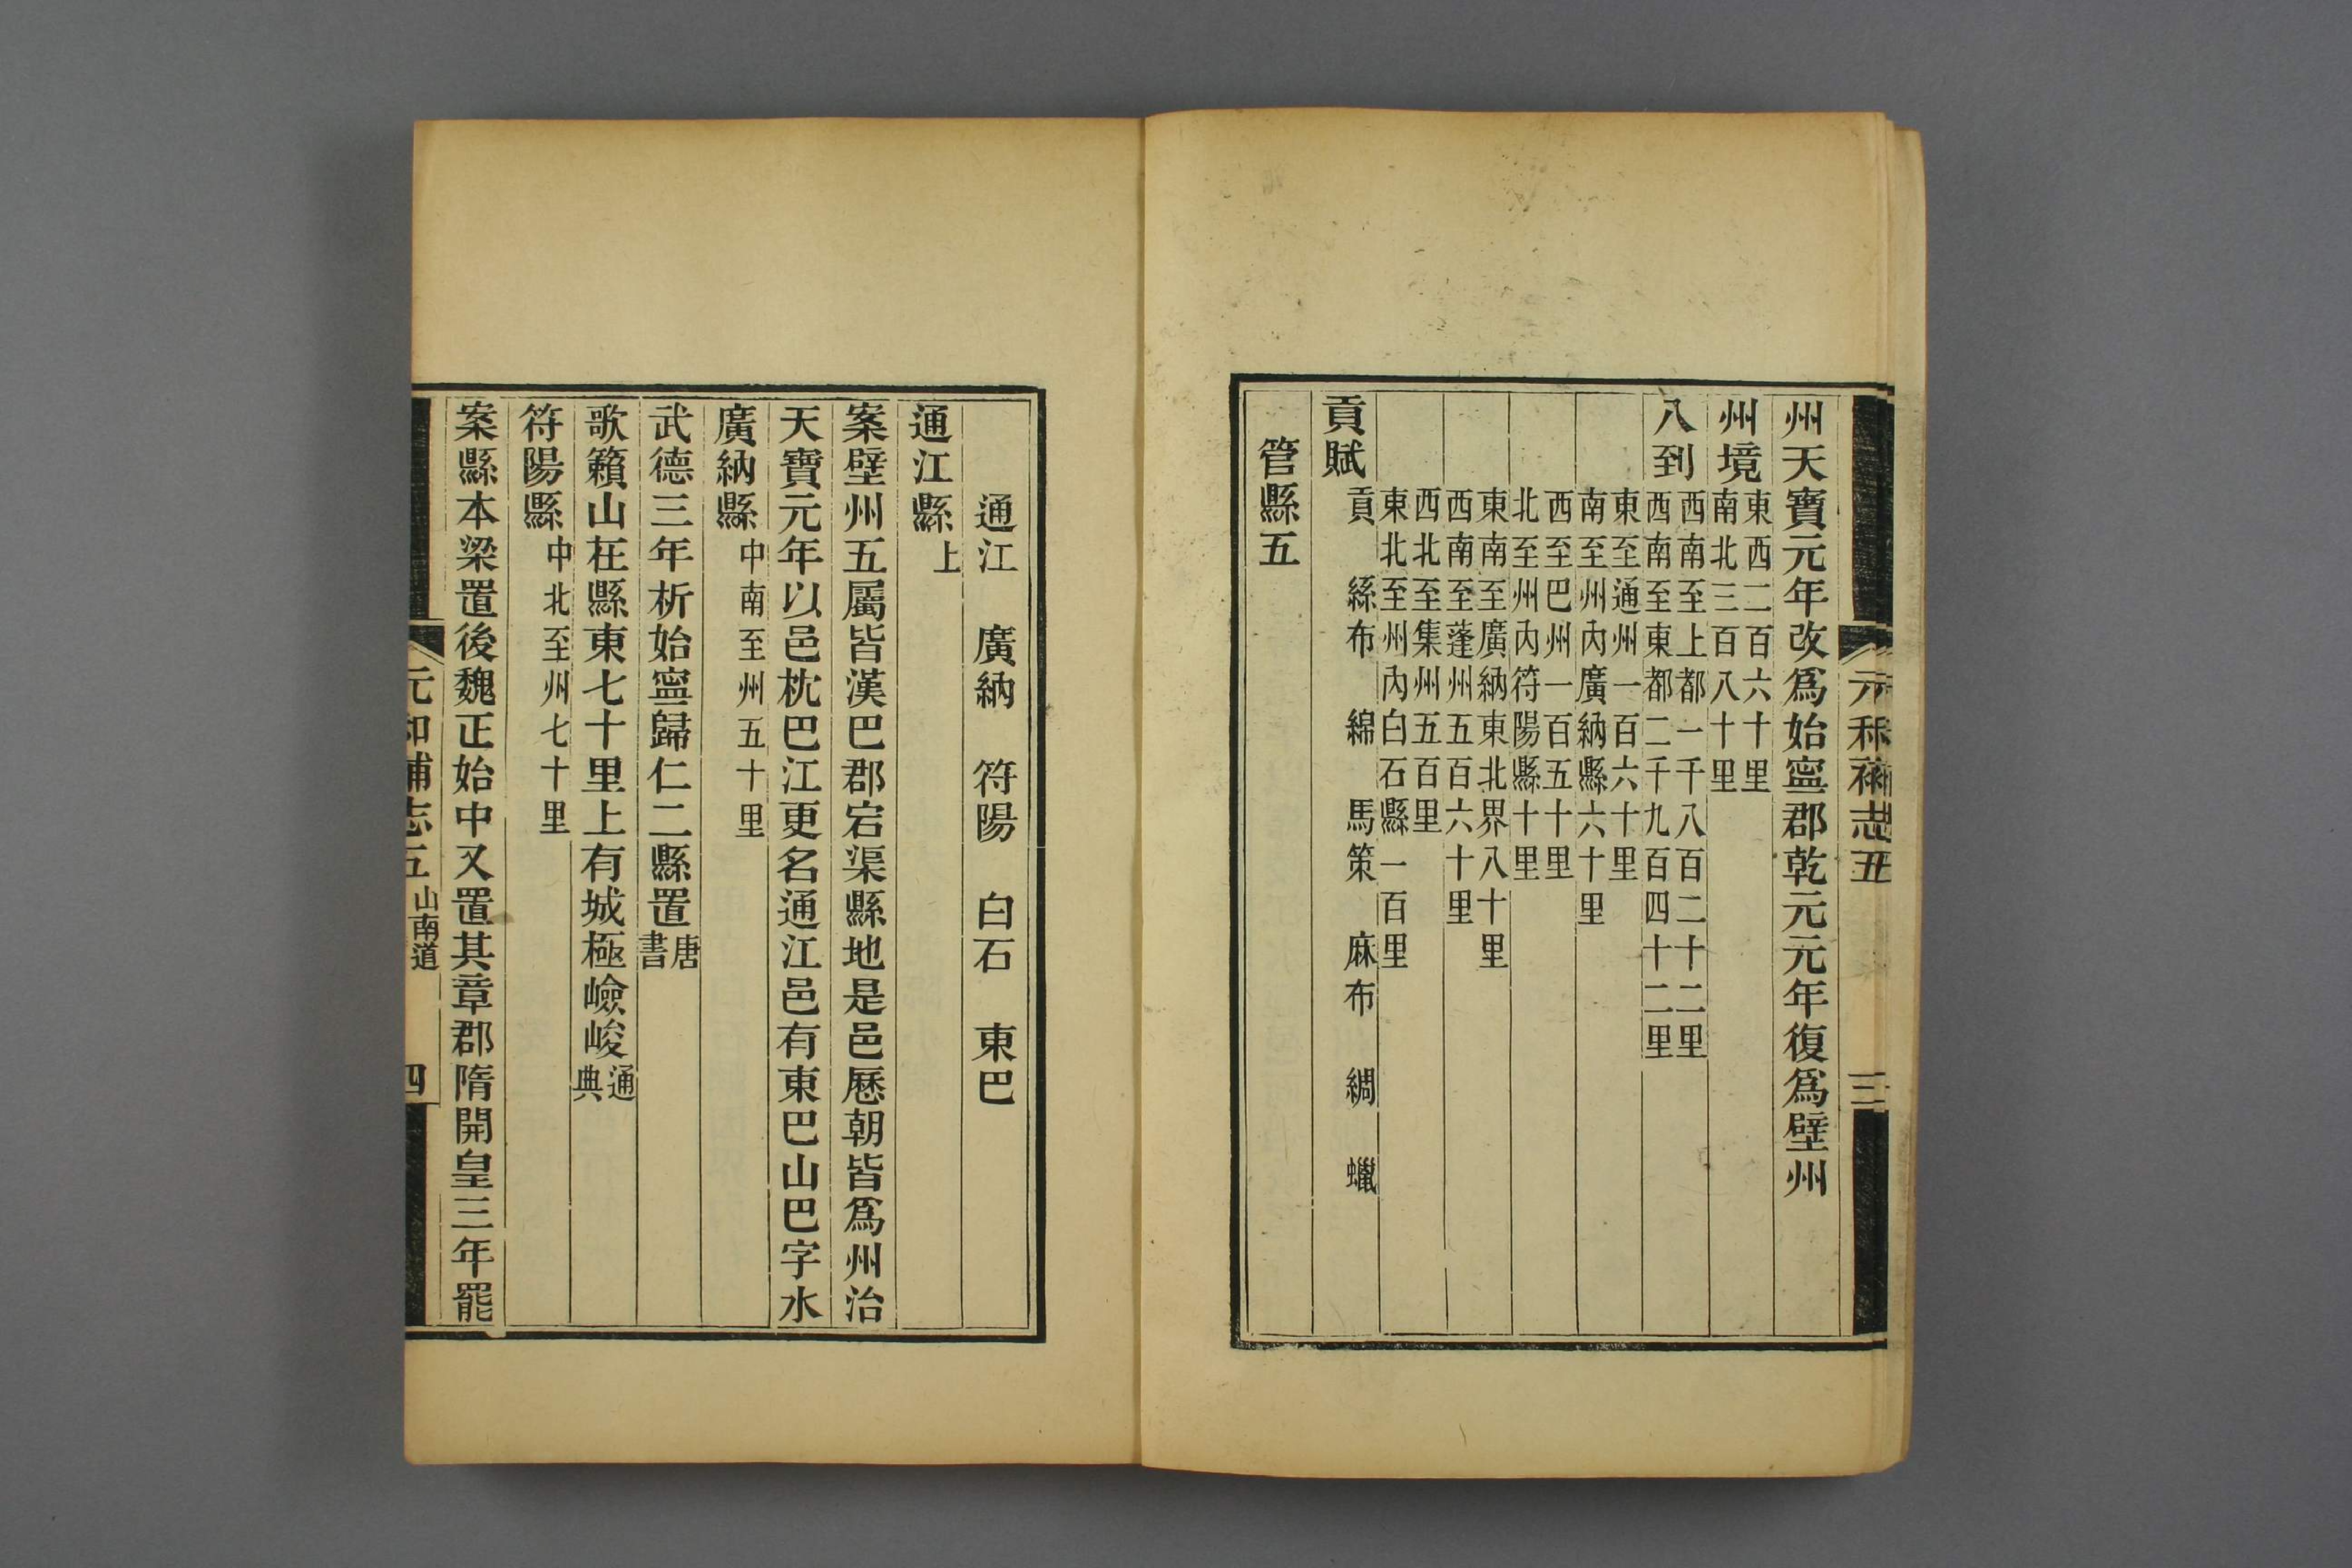 元和補志五
三
州天寶元年改爲始寧郡乾元元年復爲壁州
州境東西二百六十里
南北三百八十里
八到西南至上都一千八百二十二里
西南至東都二千九百四十二里
東至通州一百六十里
南至州內廣納縣六十里
西至巴州一百五十里
北至州內符陽縣十里
東南至廣納東北界八十里
西南至蓬州五百六十里
西北至集州五百里
東北至州內白石縣一百里
貢賦貢 絲布 綿 馬策 麻布 綢 蠟
管縣五
通江 廣納 符陽 白石 東巴
通江縣上
案壁州五屬皆漢巴郡宕渠縣地是邑歷朝皆爲州治
天寶元年以邑枕巴江更名通江邑有東巴山巴字水
廣納縣中南至州五十里
武德三年析始寧歸仁二縣置唐書
歌籟山在縣東七十里上有城極嶮峻通典
符陽縣中北至州七十里
案縣本梁置後魏正始中又置其章郡隋開皇三年罷
元和補志五山南道
四